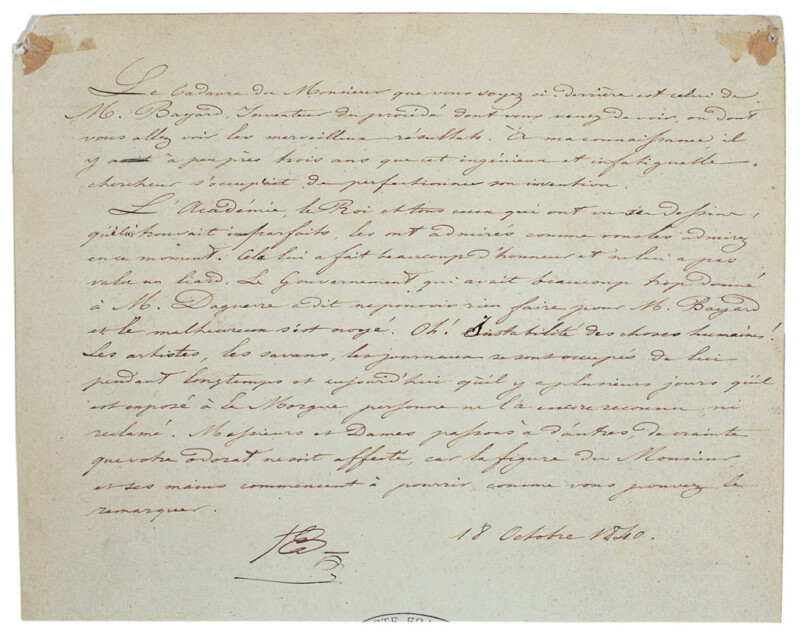 Le Cadavre du Monsieur que vous voyez ci-derrière est celui de
M. Bayard, Inventeur du procédé dont vous venez de voir, ou dont
vous allez voir les merveilleux résultats. À ma connaissance, il
y a à peu près trois ans que cet ingénieux et infatigable
chercheur s'occupait de perfectionner son invention.
L'Académie, le Roi et tous ceux qui ont vu ses dessins,
qu'il trouvait imparfaits, les ont admirés comme vous les admirez
en ce moment. Cela lui a fait beaucoup d'honneur et ne lui a pas
valu un liard. Le Gouvernement, qui avait beaucoup trop donné
à M. Daguerre a dit ne pouvoir rien faire pour M. Bayard
et le malheureux s'est noyé. Oh! Instabilité des choses humaines!
Les artistes, les savans, les journaux se sont occupés de lui
pendant longtemps et aujourd'hui qu'il y a plusieurs jours qu'il
est exposé à la Morgue, personne ne l'a encore reconnu ni
réclamé. Messieurs et Dames, passons à d'autres, de crainte
que votre odorat ne soit affecté, car la figure du Monsieur
et ses mains commencent à pourrir, comme vous pouvez le
remarquer.
HB
18 Octobre 1840.